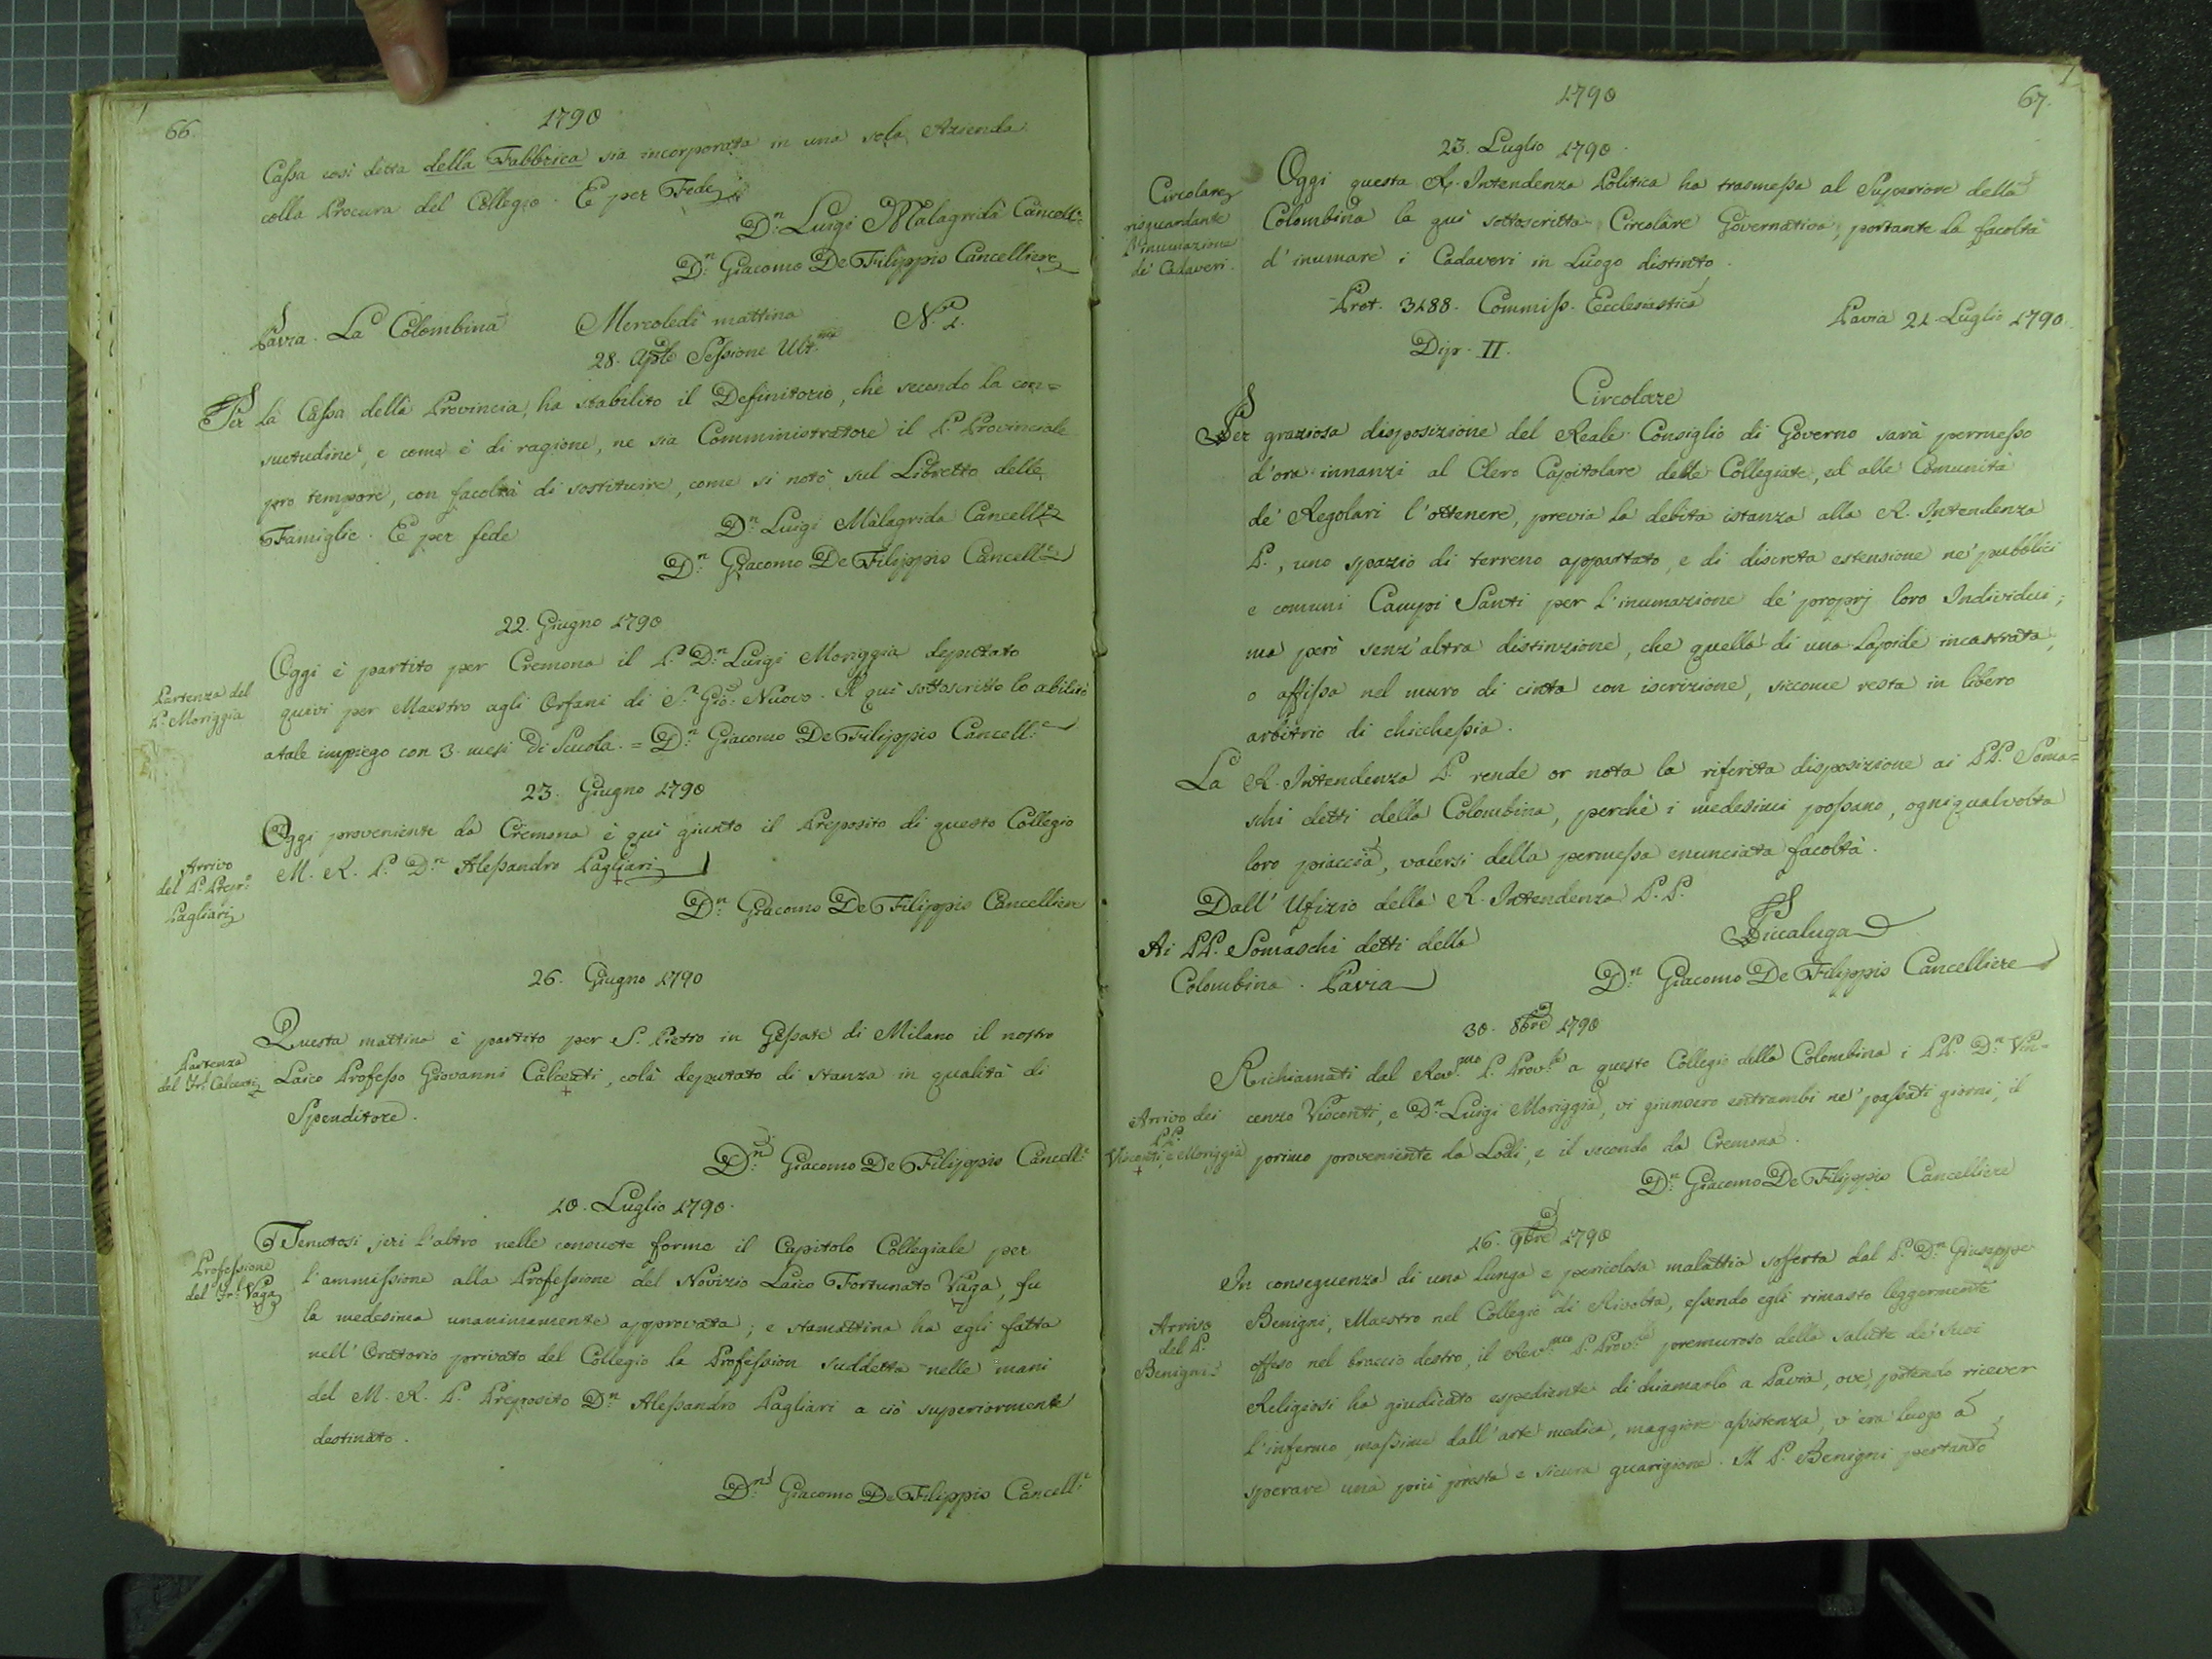 66.
1790
Cassa così detta della Fabbrica sia incorporata in una sola Azienda
colla Procura del Collegio. E per Fede
D.n Luigi Malagrida Cancell.e
D.n Giacomo De Filippis Cancelliere
Pavia. La Colombina Mercoledì mattina N.o 1.
28. Aple Sessione Ult.ma
Per la Cassa della Provincia, ha stabilito il Definitorio, che secondo la con=
suetudine, e come è di ragione, ne sia Comministratore il P. Provinciale
pro tempore, con facoltà di sostituire, come si notò sul Libretto delle
Famiglie. E per fede
D.n Luigi Malagrida Cancell.e
D.n Giacomo De Filippis Cancell.e
22. Giugno 1790
Partenza del
P. Moriggia
Oggi è partito per Cremona il P. D.n Luigi Moriggia deputato
quivi per Maestro agli Orfani di S. Gio: Nuovo. Il quì sottoscritto lo abilitò
a tale impiego con 3. mesi di Scuola. = D.n Giacomo De Filippis Cancell.e
23. Giugno 1790
Arrivo
del P. Prep.o
Pagliari
Oggi proveniente da Cremona è quì giunto il Preposito di questo Collegio
M. R. P. D.n Alessandro Pagliari
D.n Giacomo De Filippis Cancelliere
26. Giugno 1790
Partenza
del Fr. Calcenti
Questa mattina è partito per S. Pietro in Gessate di Milano il nostro
Laico Professo Giovanni Calcenti, colà deputato di stanza in qualità di
Spenditore.
D.n Giacomo De Filippis Cancell.e
10. Luglio 1790.
Professione
del Fr. Vaga
Tenutosi jeri l'altro nelle consuete forme il Capitolo Collegiale per
l'ammissione alla Professione del Novizio Laico Fortunato Vaga, fu
la medesima unanimamente approvata; e stamattina ha egli fatta
nell'Oratorio privato del Collegio la Profession suddetta nelle mani
del M. R. P. Preposito D.n Alessandro Pagliari a ciò superiormente
destinato.
D.n Giacomo De Filippis Cancell.e
1790
67.
23. Luglio 1790.
Circolare
risguardante
l'inumazione
de' Cadaveri.
Oggi questa R. Intendenza Politica ha trasmessa al Superiore della
Colombina la quì sottoscritta Circolare Governativa, portante la facoltà
d'inumare i Cadaveri in Luogo distinto.
Prot. 3188. Commiss. Ecclesiastica
Pavia 21. Luglio 1790.
Dip. II.
Circolare
Per graziosa disposizione del Reale Consiglio di Governo sarà permesso
d'ora innanzi al Clero Capitolare delle Collegiate, ed alle Comunità
de' Regolari l'ottenere, previa la debita istanza alla R. Intendenza
P., uno spazio di terreno appartato, e di discreta estensione ne' pubblici
e comuni Campi Santi per l'inumazione de' proprj loro Individui;
ma però senz'altra distinzione, che quella di una Lapide incastrata,
o affissa nel muro di cinta con iscrizione, siccome resta in libero
arbitrio di chichessia.
La R. Intendenza P. rende or nota la riferita disposizione ai PP. Soma=
schi detti della Colombina, perchè i medesimi possano, ogniqualvolta
loro piaccia, valersi della permessa enunciata facoltà.
Dall'Ufizio della R. Intendenza P. P.
Piccaluga
Ai PP. Somaschi detti della
Colombina. Pavia
D.n Giacomo De Filippis Cancelliere
30. 8bre 1790
Arrivo dei
PP.
Visconti, e Moriggia
Richiamati dal Rev.mo P. Prov.le a questo Collegio della Colombina i PP. D.n Vin=
cenzo Visconti, e D.n Luigi Moriggia, vi giunsero entrambi ne' passati giorni, il
primo proveniente da Lodi, e il secondo da Cremona.
D.n Giacomo De Filippis Cancelliere
16. 9bre 1790
Arrivo
del P.
Benigni.
In conseguenza di una lunga e pericolosa malattia sofferta dal P. D.n Giuseppe
Benigni, Maestro nel Collegio di Rivolta, essendo egli rimasto leggermente
offeso nel braccio destro, il Rev.mo P. Prov.le premuroso della salute de' suoi
Religiosi ha giudicato espediente di chiamarlo a Pavia, ove, potendo riever
l'infermo, massime dall'arte medica, maggiore assistenza, v'era luogo a
sperare una più presta e sicura guarigione. Il P. Benigni pertanto